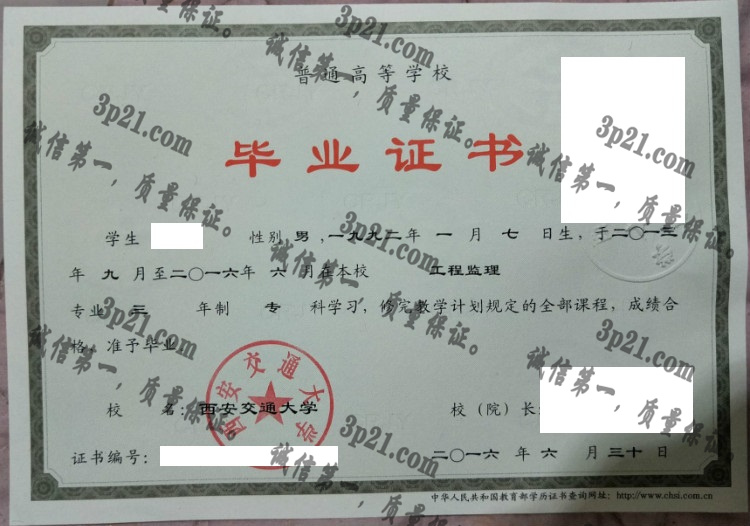 普通高等学校
毕业证书
学生 性别 男，一九九二年 一 月 七 日生，于二〇一三
年 九 月至二〇一六年 六 月在本校 工程监理
专业 三 年制 专 科学习，修完教学计划规定的全部课程，成绩合
格，准予毕业
西安交通大学
校 名：西安交通大学 校（院）长：
证书编号： 二〇一六 年 六 月 三十 日
中华人民共和国教育部学历证书查询网址：http://www.chsi.com.cn
3p21.com
诚信第一，质量保证。
3p21.com
诚信第一，质量保证。
3p21.com
诚信第一，质量保证。
3p21.com
诚信第一，质量保证。
3p21.com
诚信第一，质量保证。
3p21.com
诚信第一，质量保证。
3p21.com
诚信第一，质量保证。